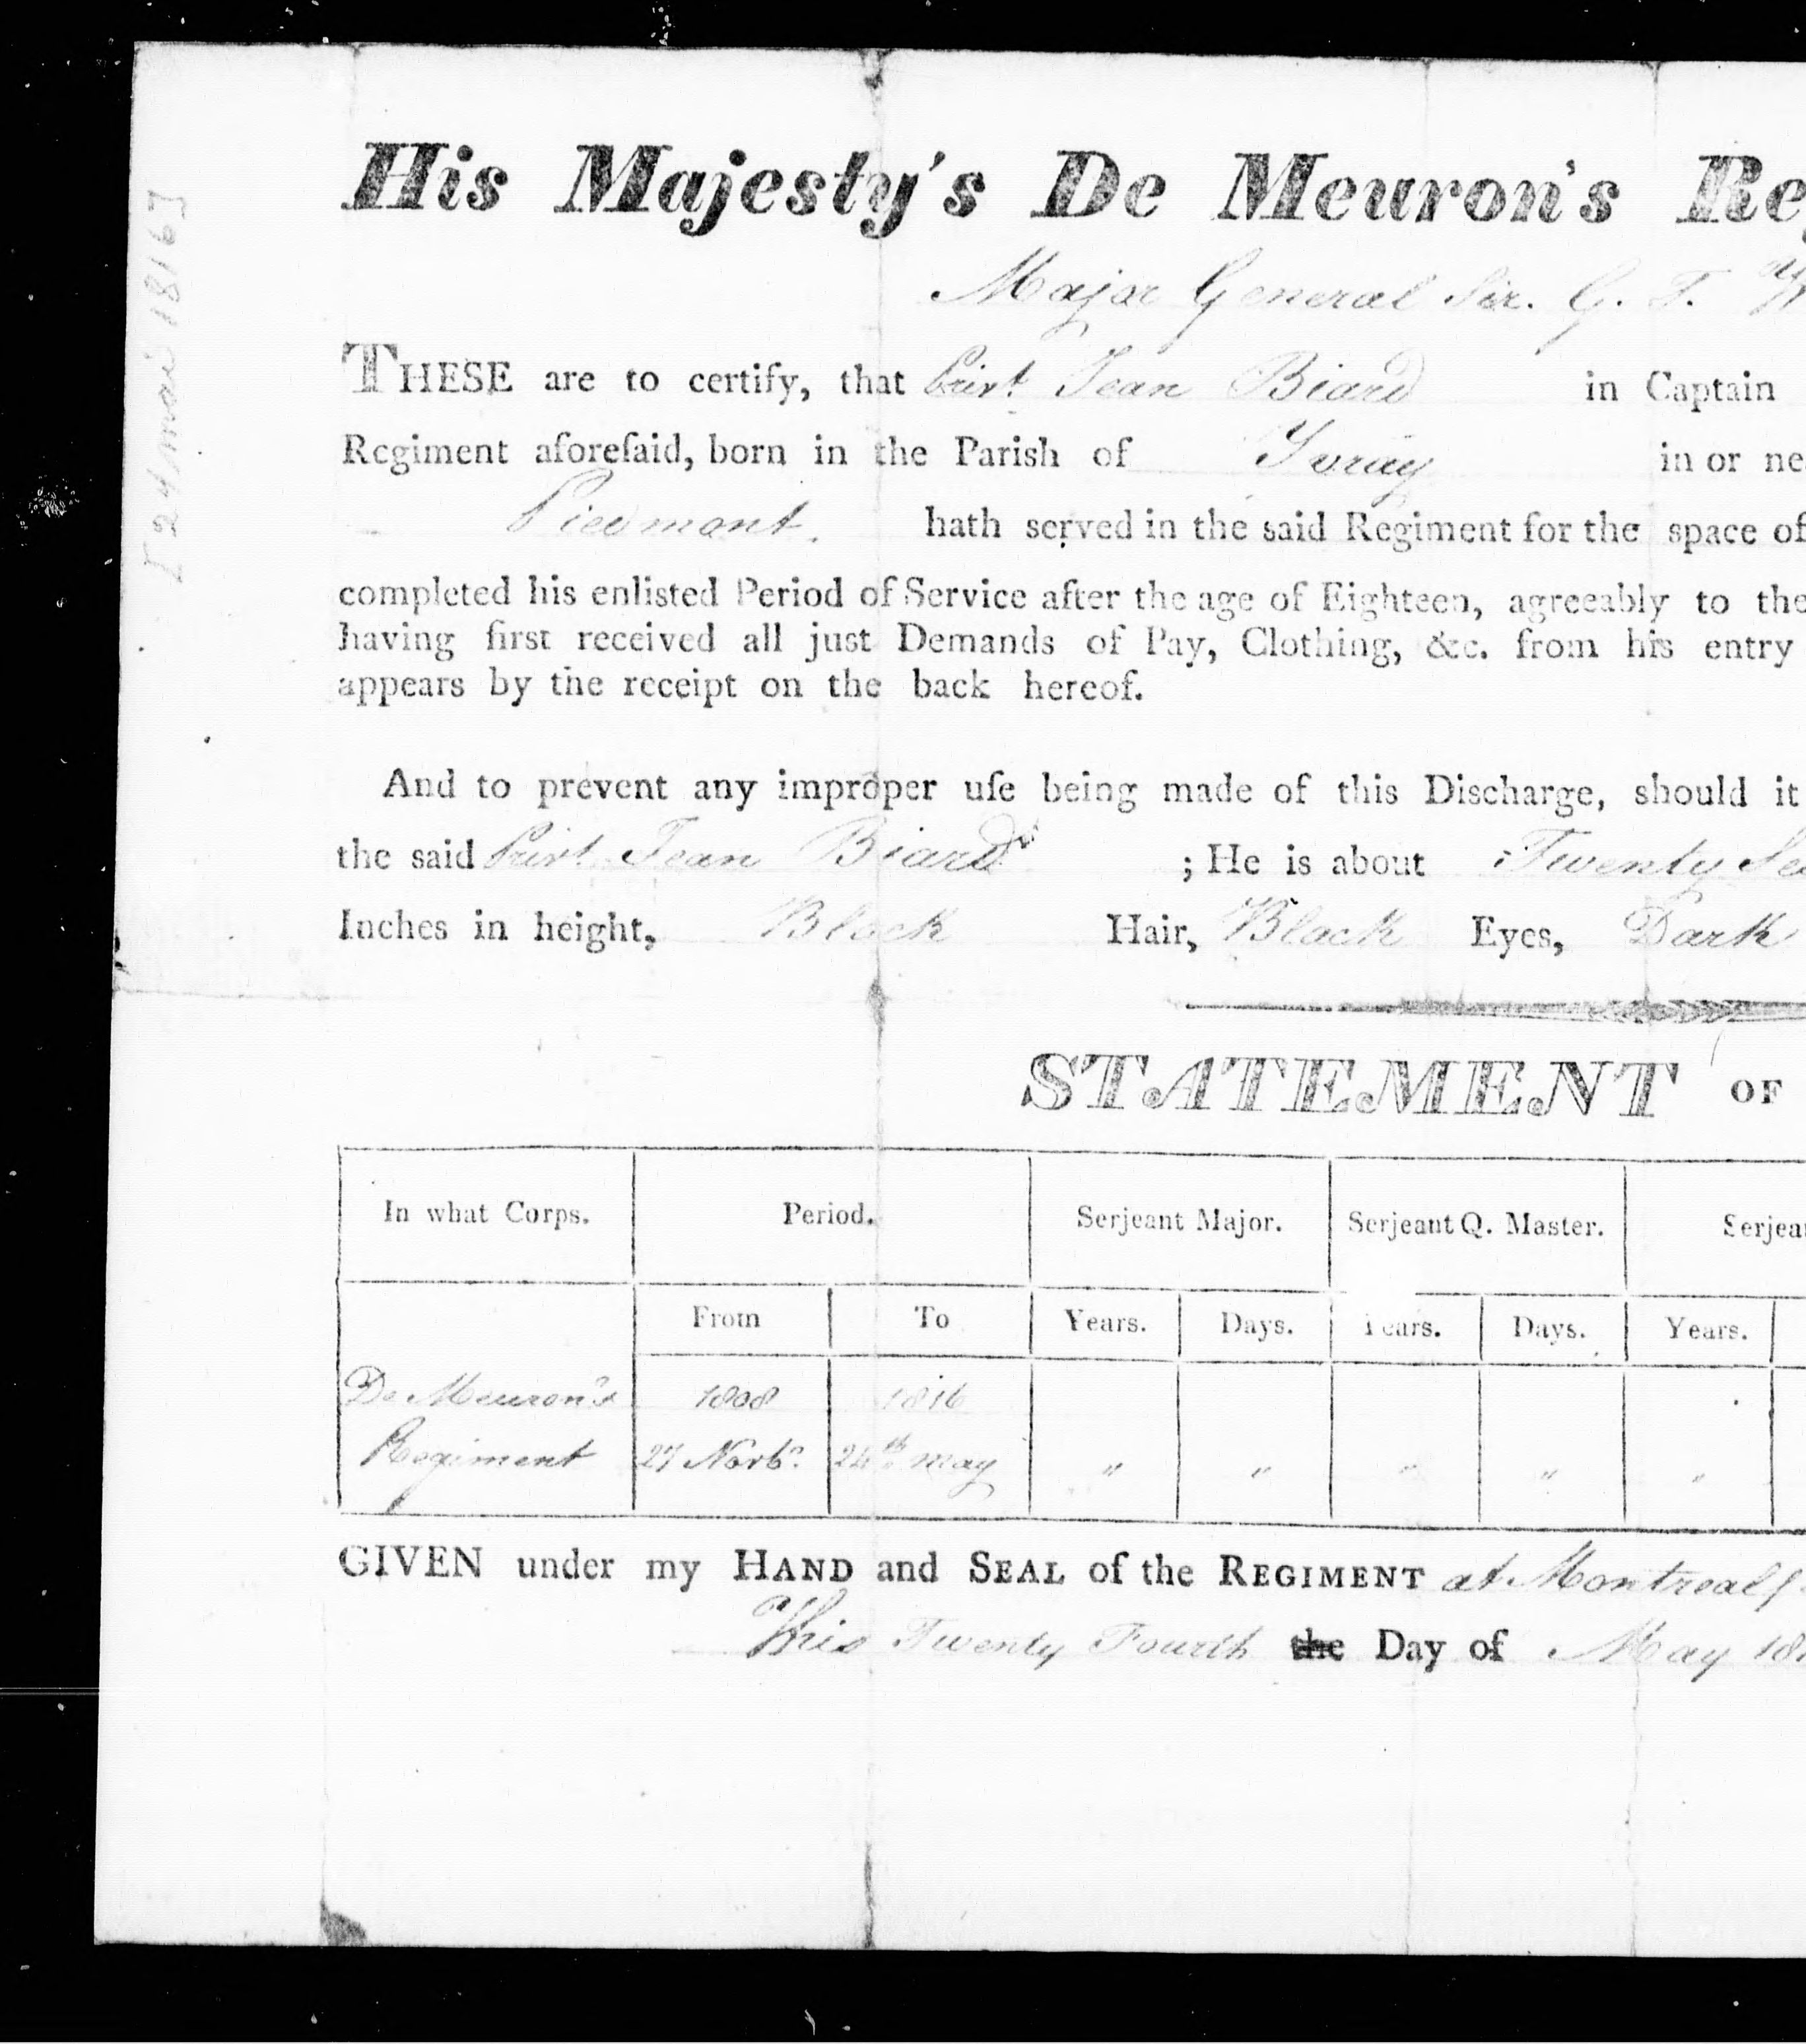 [24 mai 1816]
His Majesty's De Meuron's Re
Major General Sir. G. T.
THESE are to certify, that Privt. Jean Biard in Captain
Regiment aforeſaid, born in the Parish of Yvray in or ne
Piedmont. hath served in the said Regiment for the space of
completed his enlisted Period of Service after the age of Eighteen, agreeably to the
having first received all just Demands of Pay, Clothing, &c. from his entry
appears by the receipt on the back hereof.
And to prevent any improper uſe being made of this Discharge, should it
the said Privt. Jean Biard ; He is about Twenty Se
Inches in height, Black Hair, Black Eyes, Dark
STATEMENT OF
In what Corps. Period. Serjeant Major. Serjeant Q. Master. Serjea
From To Years. Days. Years. Days. Years.
De Meuron's 1808 1816
Regiment 27 Novbr. 24th may " " " " "
GIVEN under my HAND and SEAL of the REGIMENT at Montreal
This Twenty Fourth the Day of May 18